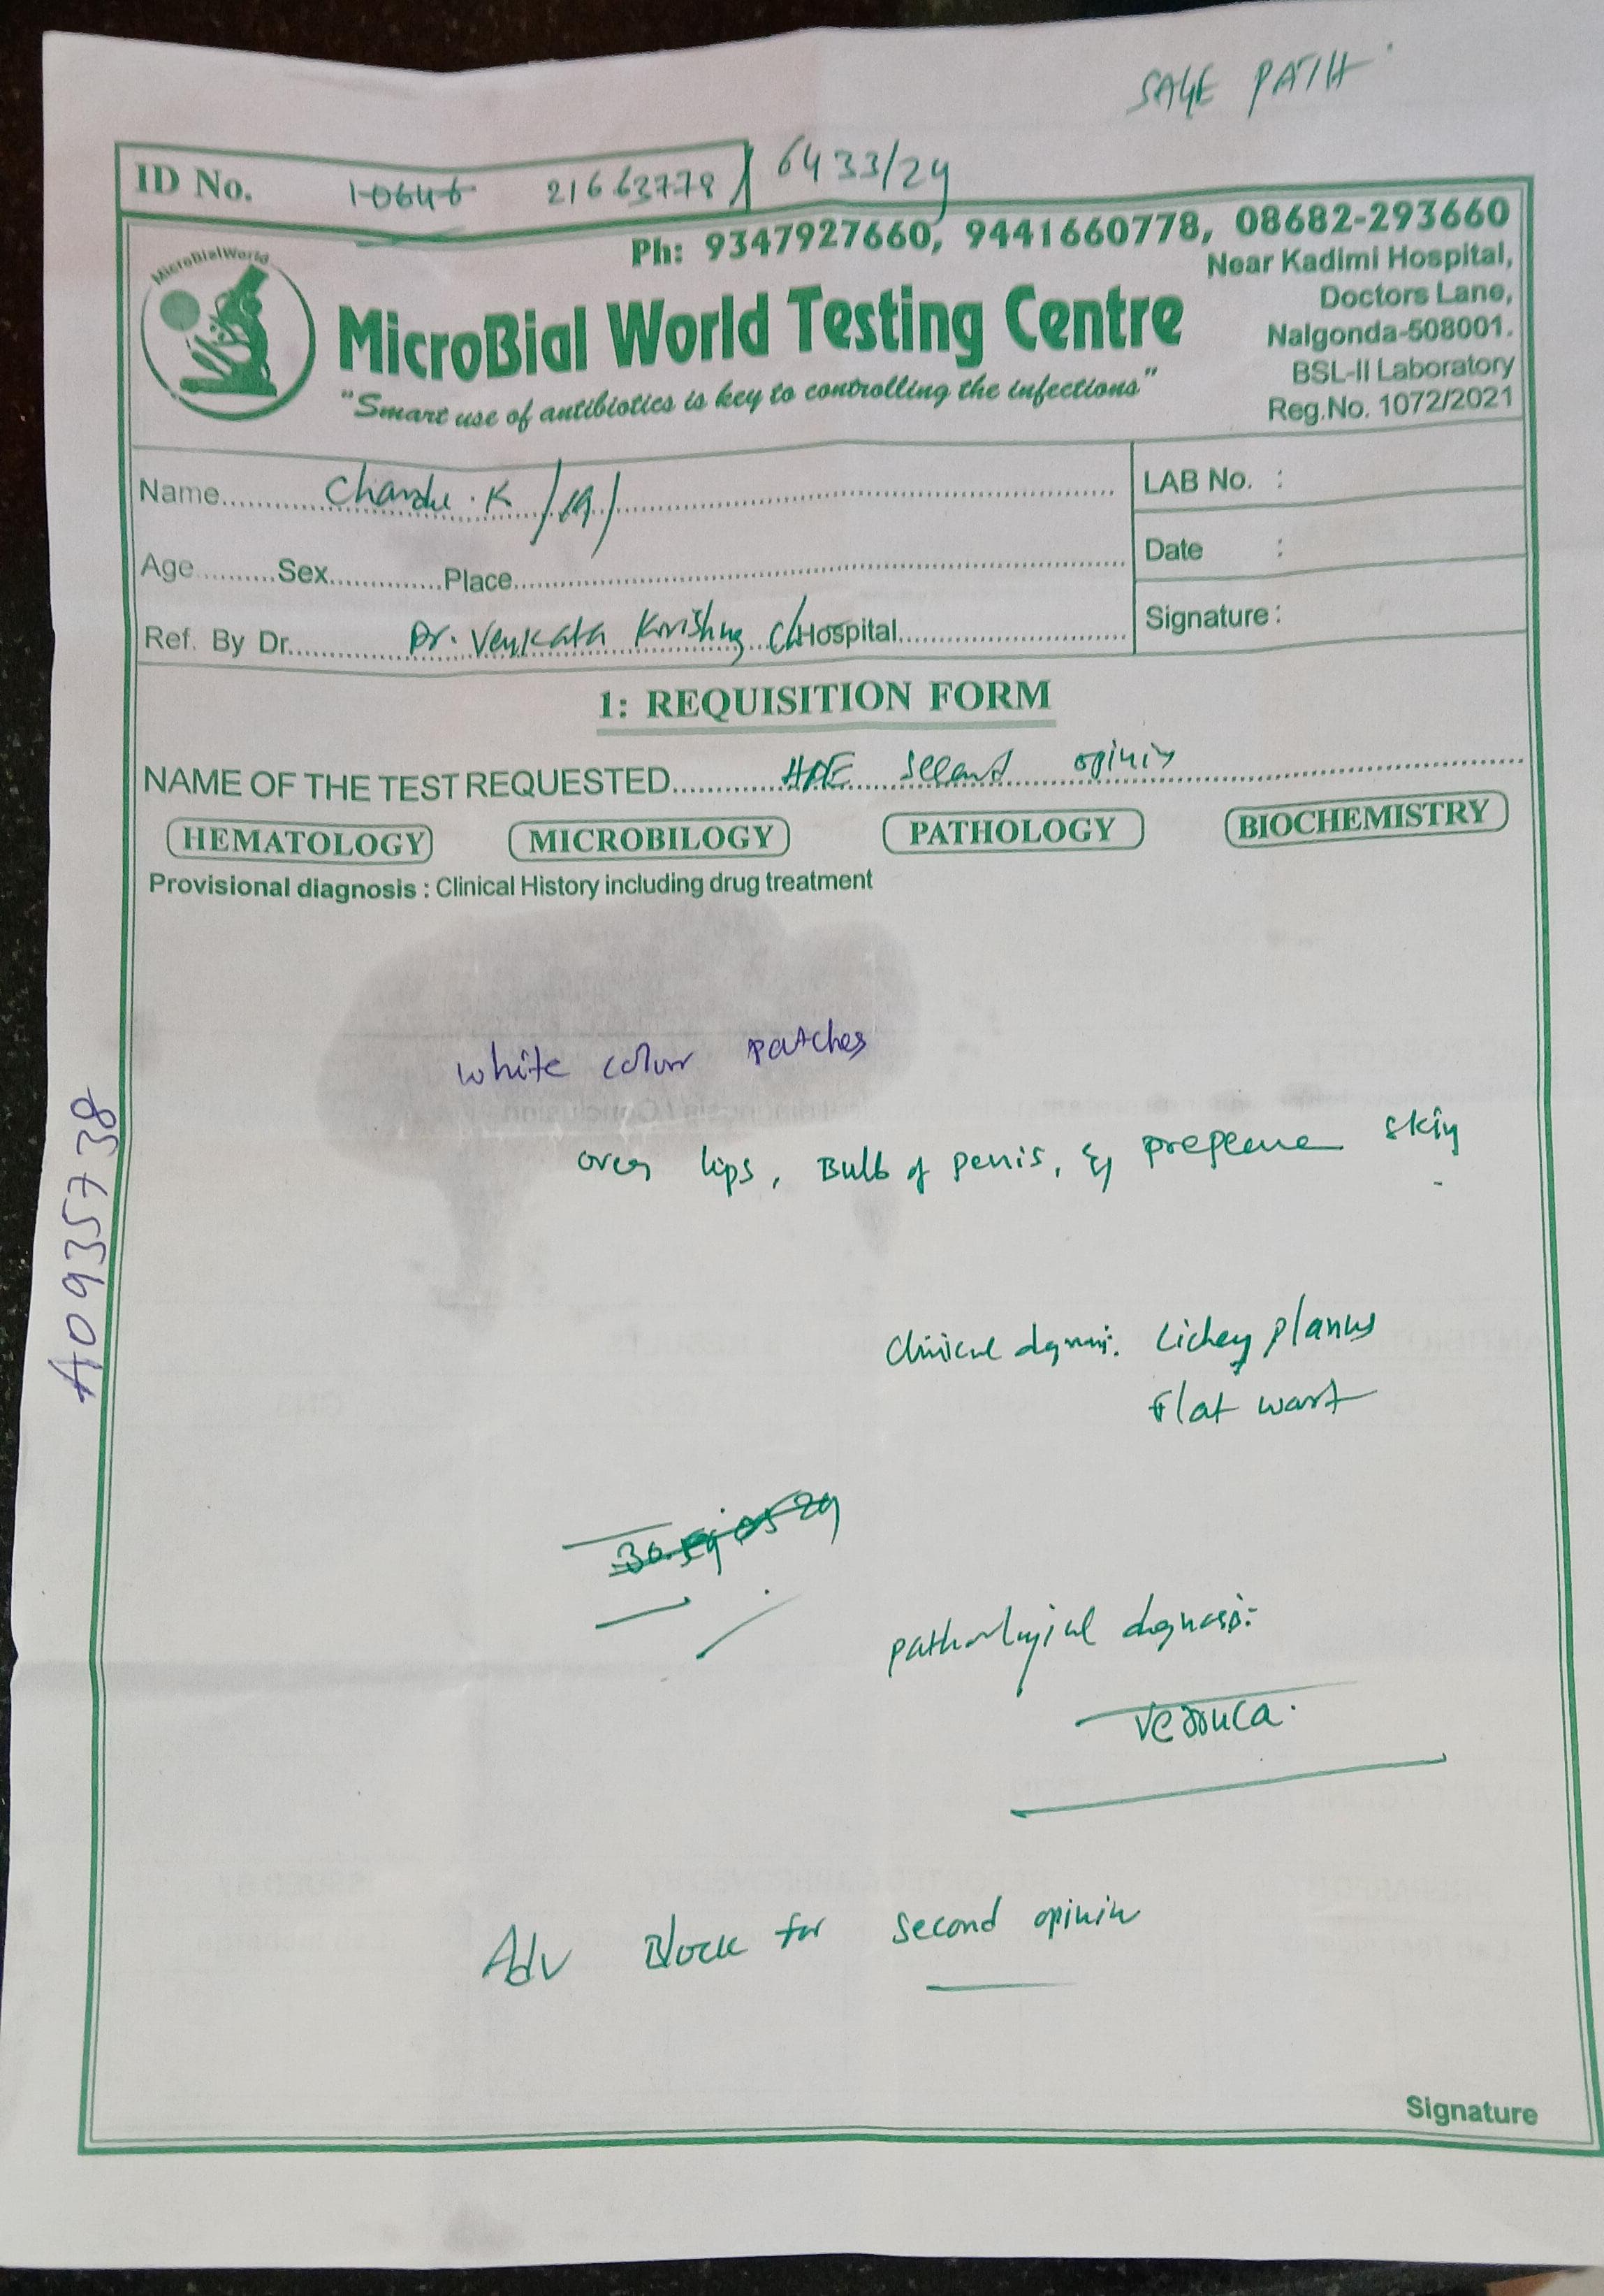 SAGE PATH
ID No. 10646 21663778 / 6433/24
MicroBialWorld
Ph: 9347927660, 9441660778, 08682-293660
MicroBial World Testing Centre
"Smart use of antibiotics is key to controlling the infections"
Near Kadimi Hospital,
Doctors Lane,
Nalgonda-508001.
BSL-II Laboratory
Reg.No. 1072/2021
Name............ Chandu . K /19/
LAB No. :
Age..........Sex.............Place
Date :
Ref. By Dr............. Dr. Venkata Krishna Ch Hospital
Signature :
1: REQUISITION FORM
NAME OF THE TEST REQUESTED............ HPE second opinin
HEMATOLOGY MICROBILOGY PATHOLOGY BIOCHEMISTRY
Provisional diagnosis : Clinical History including drug treatment
white colour patches
over lips, Bulb of penis, & prepeuce skin
Clinical dignosi: Lichen planus
Flat wart
pathological dignosis:-
Verruca.
Adv Block for second opinin
A0935738
Signature